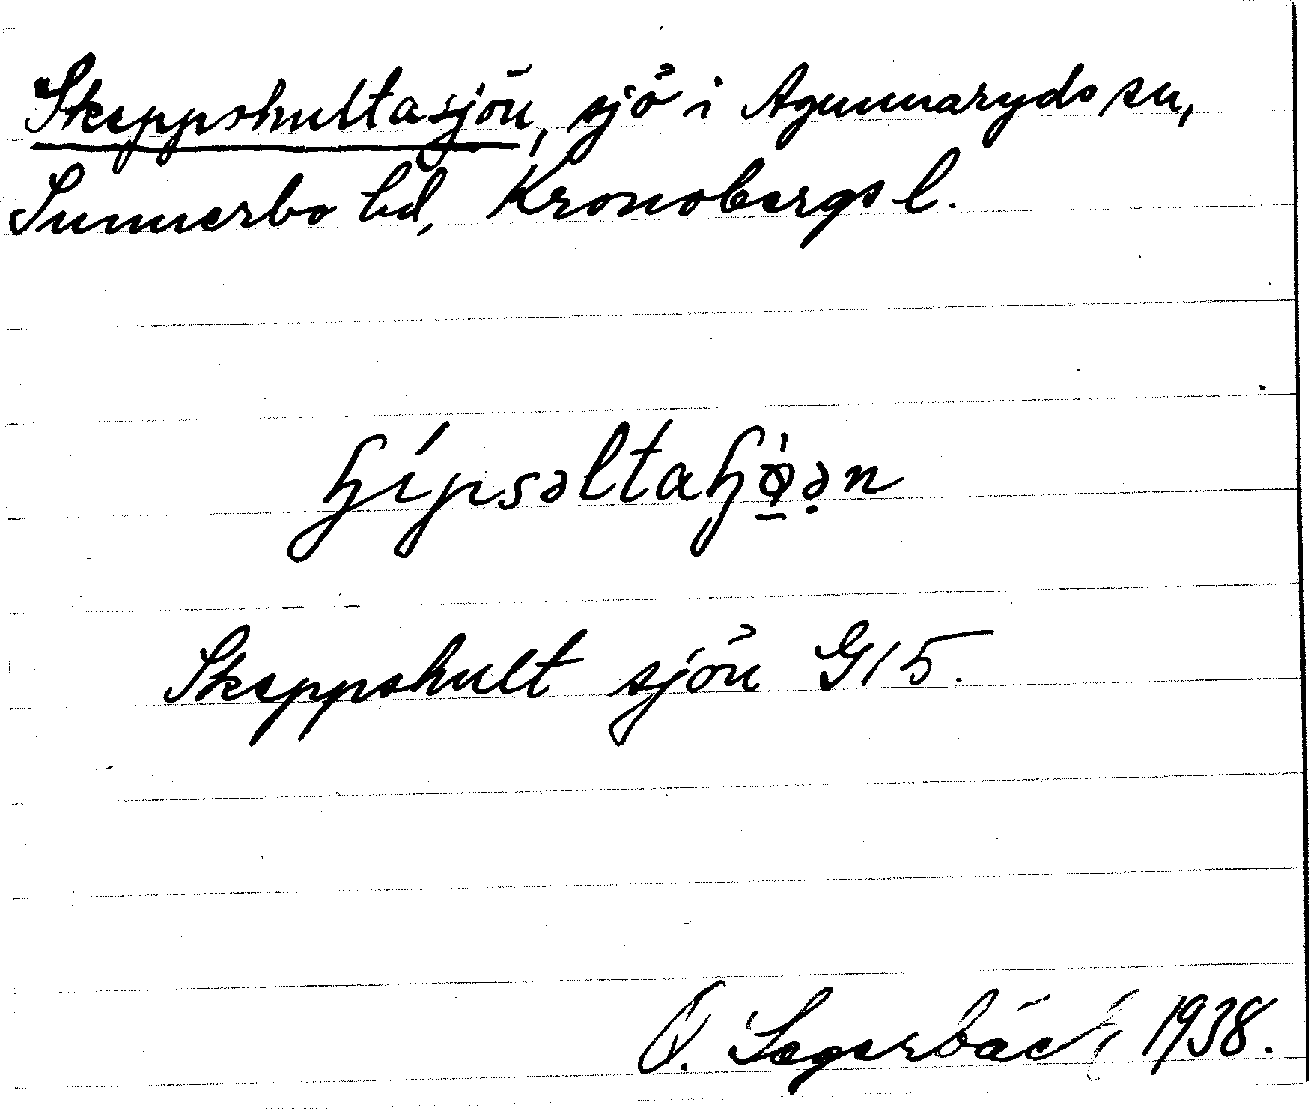 Skeppshultasjön, sjö i Agunnaryds sn,
Sunnerbo hd, Kronobergs l.
ɧípsəltaɧø̱̀ə̣n
Skeppshult sjön G15.
O. Segerbäck 1938.